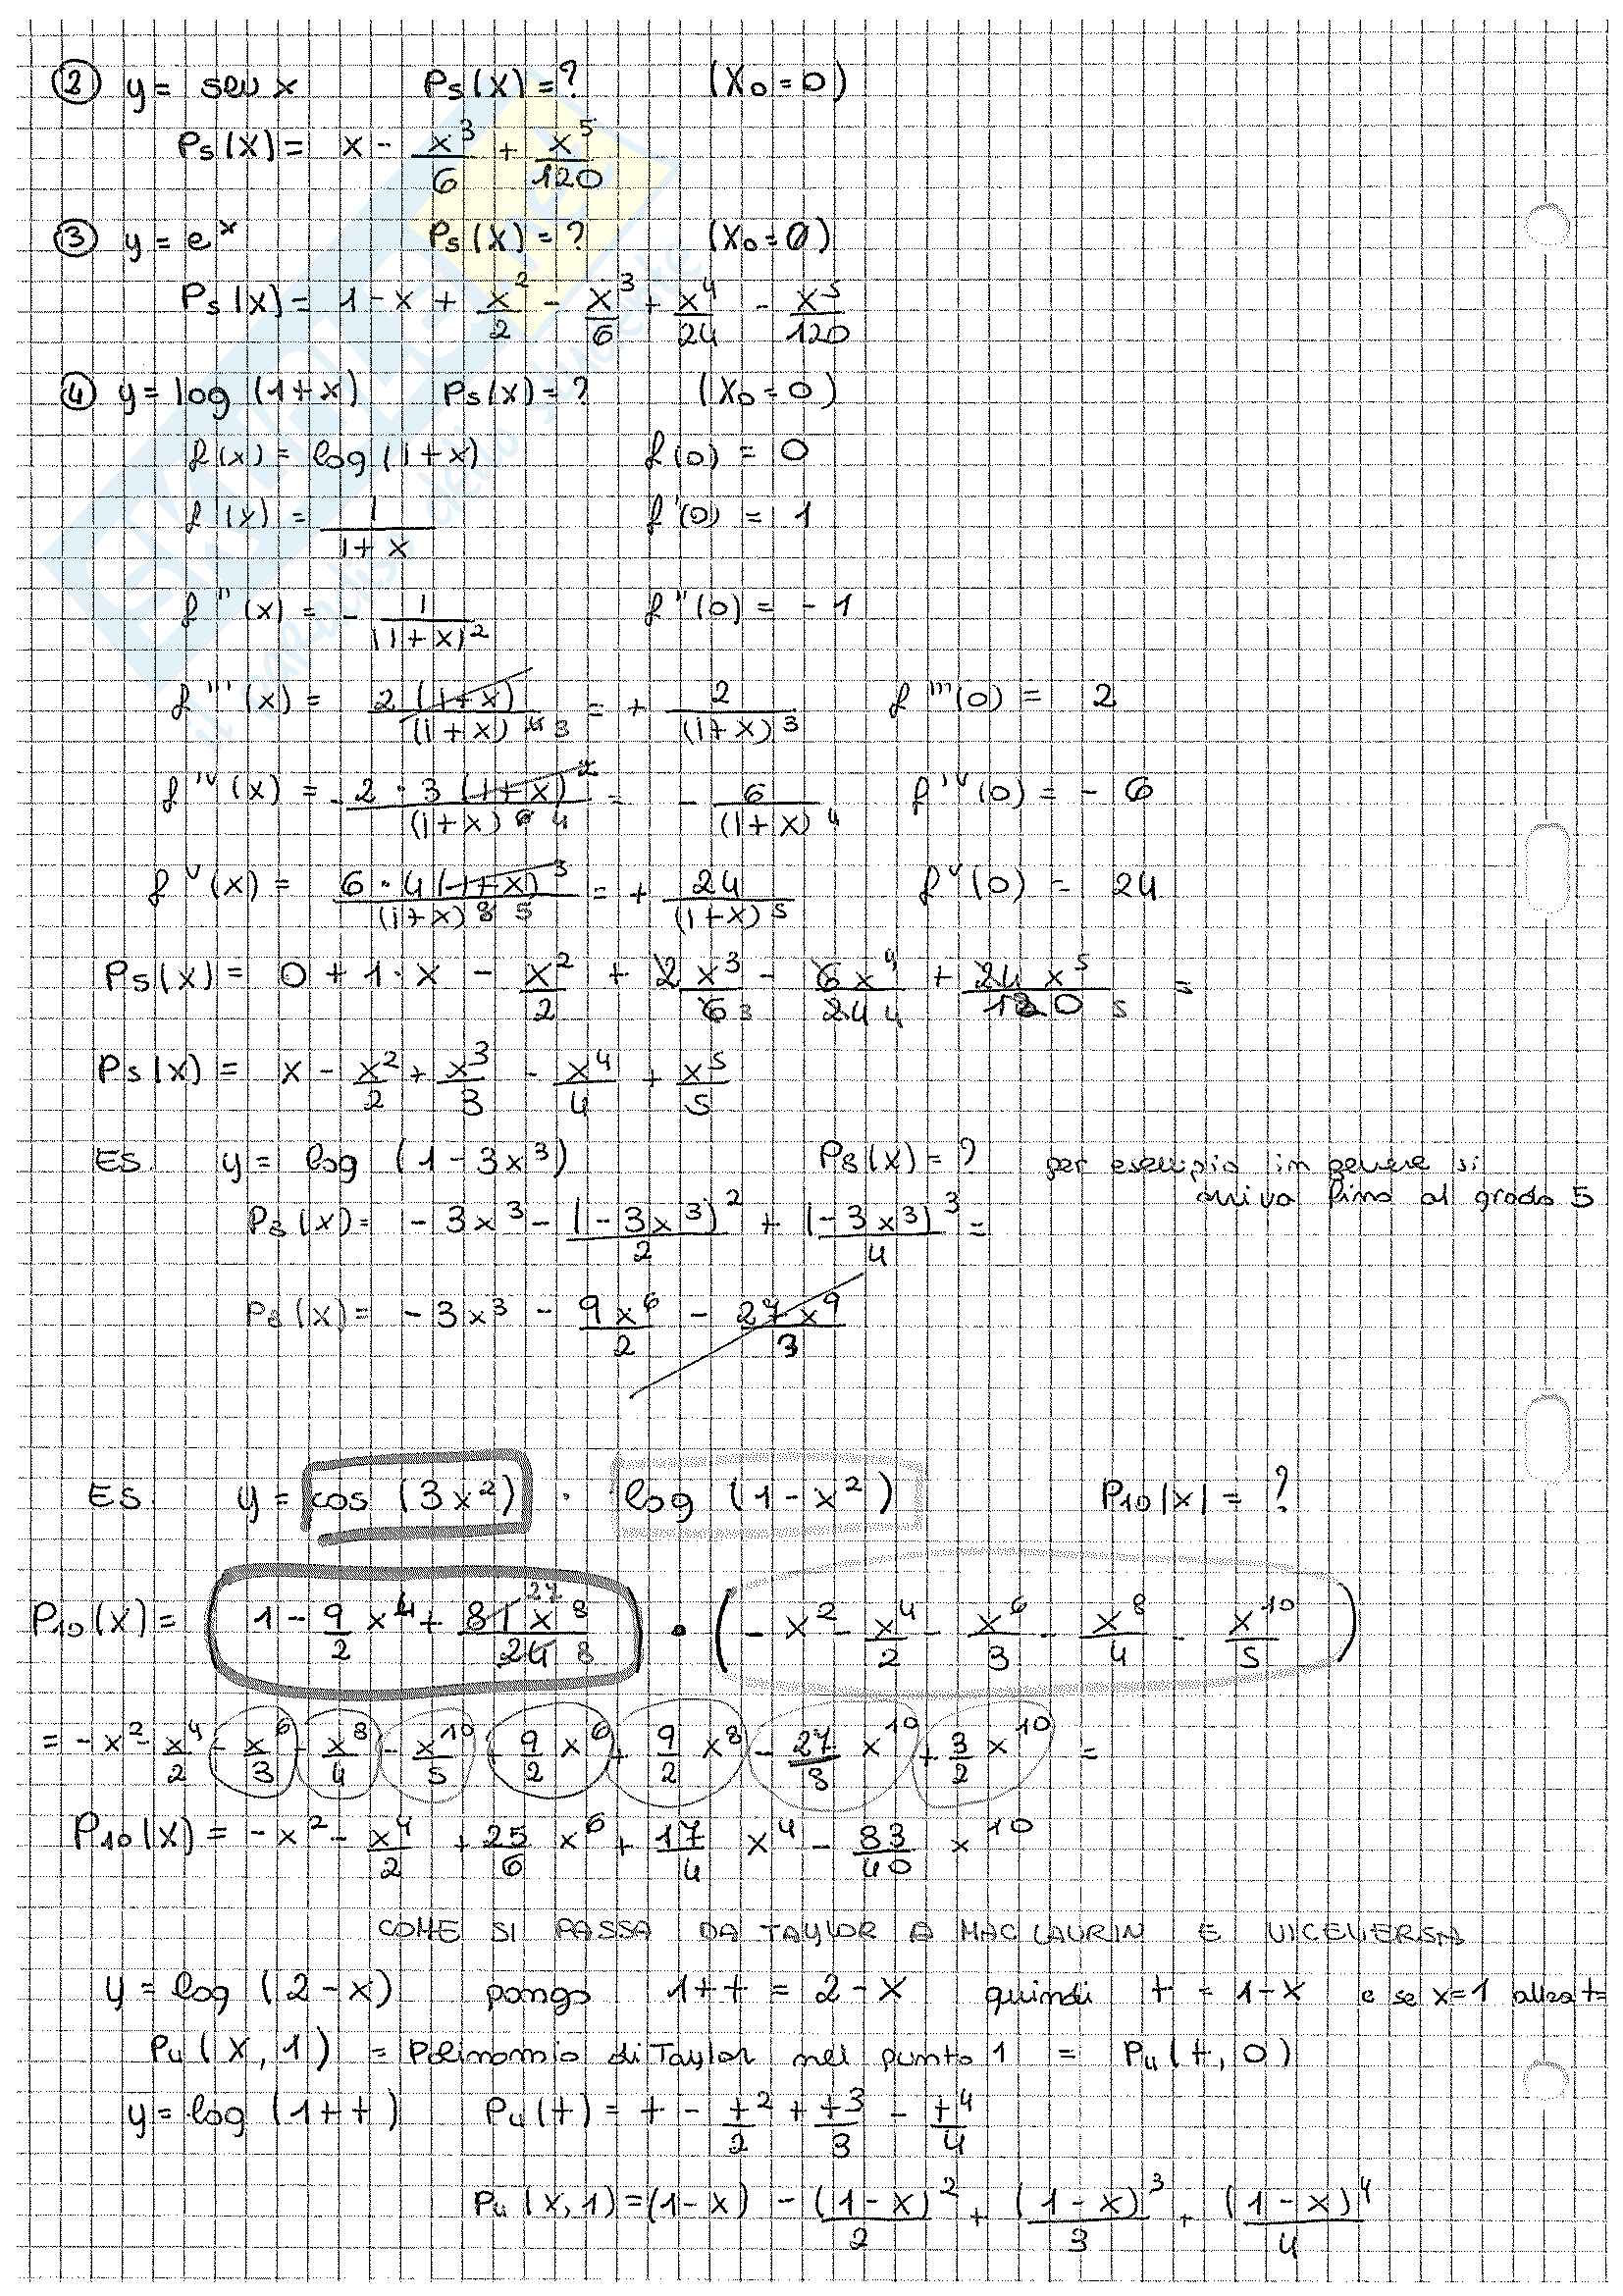 ② y = sen x P₅(x) = ? (x₀ = 0)
P₅(x) = x - x³/6 + x⁵/120
③ y = eˣ P₅(x) = ? (x₀ = 0)
P₅(x) = 1 - x + x²/2 - x³/6 + x⁴/24 - x⁵/120
④ y = log (1+x) P₅(x) = ? (x₀ = 0)
f(x) = log (1+x) f(0) = 0
f'(x) = 1/(1+x) f'(0) = 1
f''(x) = - 1/(1+x)² f''(0) = - 1
f'''(x) = 2(1+x)/(1+x)⁴ ³ = + 2/(1+x)³ f'''(0) = 2
f^IV(x) = - 2·3(1+x)²/(1+x)⁶ ⁴ = - 6/(1+x)⁴ f^IV(0) = - 6
f^V(x) = 6·4(1+x)³/(1+x)⁸ ⁵ = + 24/(1+x)⁵ f^V(0) = 24
P₅(x) = 0 + 1·x - x²/2 + 2x³/6 3 - 6x⁴/24 4 + 24x⁵/120 5 =
P₅(x) = x - x²/2 + x³/3 - x⁴/4 + x⁵/5
ES y = log (1 - 3x³) P₈(x) = ? per esempio in genere si
arriva fino al grado 5
P₈(x) = - 3x³ - (-3x³)²/2 + (-3x³)³/4 =
P₈(x) = - 3x³ - 9x⁶/2 - 27x⁹/3
ES y = cos (3x²) · log (1 - x²) P₁₀(x) = ?
P₁₀(x) = (1 - 9/2 x⁴ + 81 27 x⁸/24 8) · (- x² - x⁴/2 - x⁶/3 - x⁸/4 - x¹⁰/5)
= - x² - x⁴/2 - x⁶/3 - x⁸/4 - x¹⁰/5 + 9/2 x⁶ + 9/2 x⁸ - 27/8 x¹⁰ + 3/2 x¹⁰ =
P₁₀(x) = - x² - x⁴/2 + 25/6 x⁶ + 17/4 x⁴ - 83/40 x¹⁰
COME SI PASSA DA TAYLOR A MAC LAURIN E VICEVERSA
y = log (2 - x) pongo 1 + t = 2 - x quindi t = 1 - x e se x = 1 allora t =
P₄(x, 1) = Polinomio di Taylor nel punto 1 = P₄(t, 0)
y = log (1 + t) P₄(t) = t - t²/2 + t³/3 - t⁴/4
P₄(x, 1) = (1-x) - (1-x)²/2 + (1-x)³/3 + (1-x)⁴/4